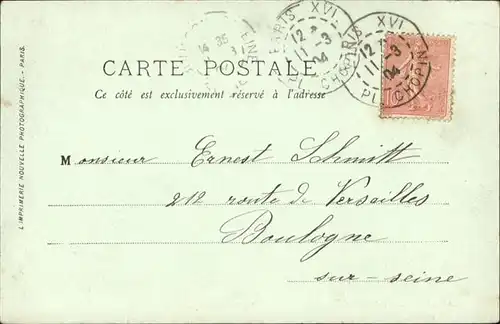 PARIS XVI
12
11 - 3
04
PL. CHOPIN
PARIS XVI
12
11 - 3
04
CHOPIN
14 35
CARTE POSTALE
Ce côté est exclusivement réservé à l'adresse
Monsieur Ernest Schmitt
212 route de Versailles
Boulogne
sur-seine
L'IMPRIMERIE NOUVELLE PHOTOGRAPHIQUE - PARIS.